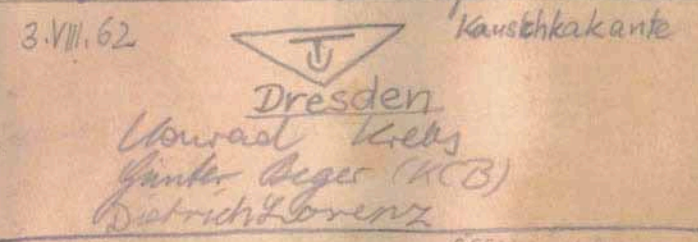 3.VIII.62 TU Kauschkakante
Dresden
Konrad Krebs
Günter Beger (KCB)
Dietrich Lorenz